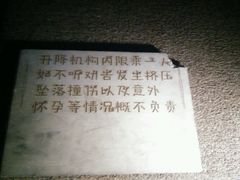 升降机构内限乘二人
如不听劝告发生挤压
坠落撞伤以及意外
怀孕等情况概不负责